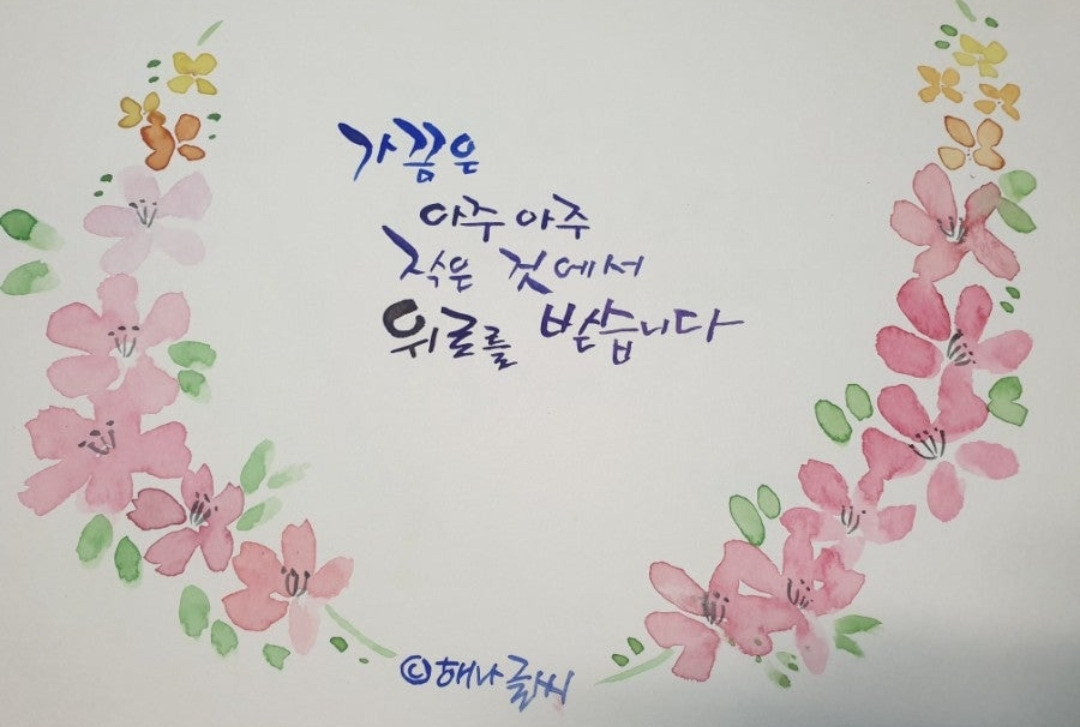 가끔은
아주 아주
작은 것에서
위로를 받습니다
©해나글씨